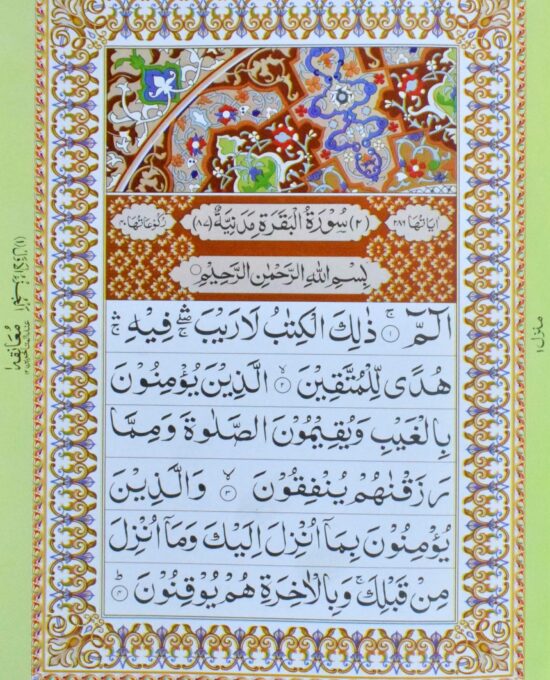 اٰیَاتُهَا ۲۸۶
(۲) سُوْرَةُ الْبَقَرَةِ مَدَنِيَّةٌ (۸۷)
رُكُوْعَاتُهَا ۴۰
بِسْمِ اللهِ الرَّحْمٰنِ الرَّحِيْمِ
الٓمّٓ ۚ﴿۱﴾ ذٰلِكَ الْكِتٰبُ لَا رَيْبَ ۛۚۖ فِيْهِ ۛۚ
هُدًى لِّلْمُتَّقِيْنَ ۙ﴿۲﴾ الَّذِيْنَ يُؤْمِنُوْنَ
بِالْغَيْبِ وَيُقِيْمُوْنَ الصَّلٰوةَ وَمِمَّا
رَزَقْنٰهُمْ يُنْفِقُوْنَ ۙ﴿۳﴾ وَالَّذِيْنَ
يُؤْمِنُوْنَ بِمَاۤ اُنْزِلَ اِلَيْكَ وَمَاۤ اُنْزِلَ
مِنْ قَبْلِكَ ۚ وَبِالْاٰخِرَةِ هُمْ يُوْقِنُوْنَ ؕ﴿۴﴾
منزل ۱
معانقه